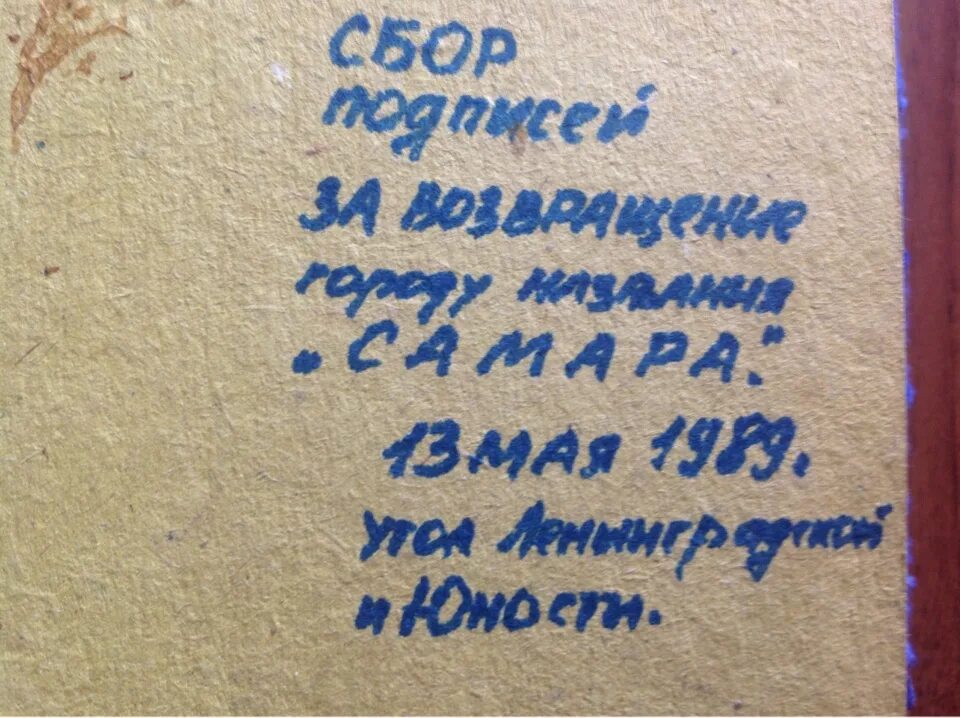 СБОР
подписей
ЗА ВОЗВРАЩЕНИЕ
городу названия
„САМАРА."
13 МАЯ 1989.
угол Ленинградской
и Юности.